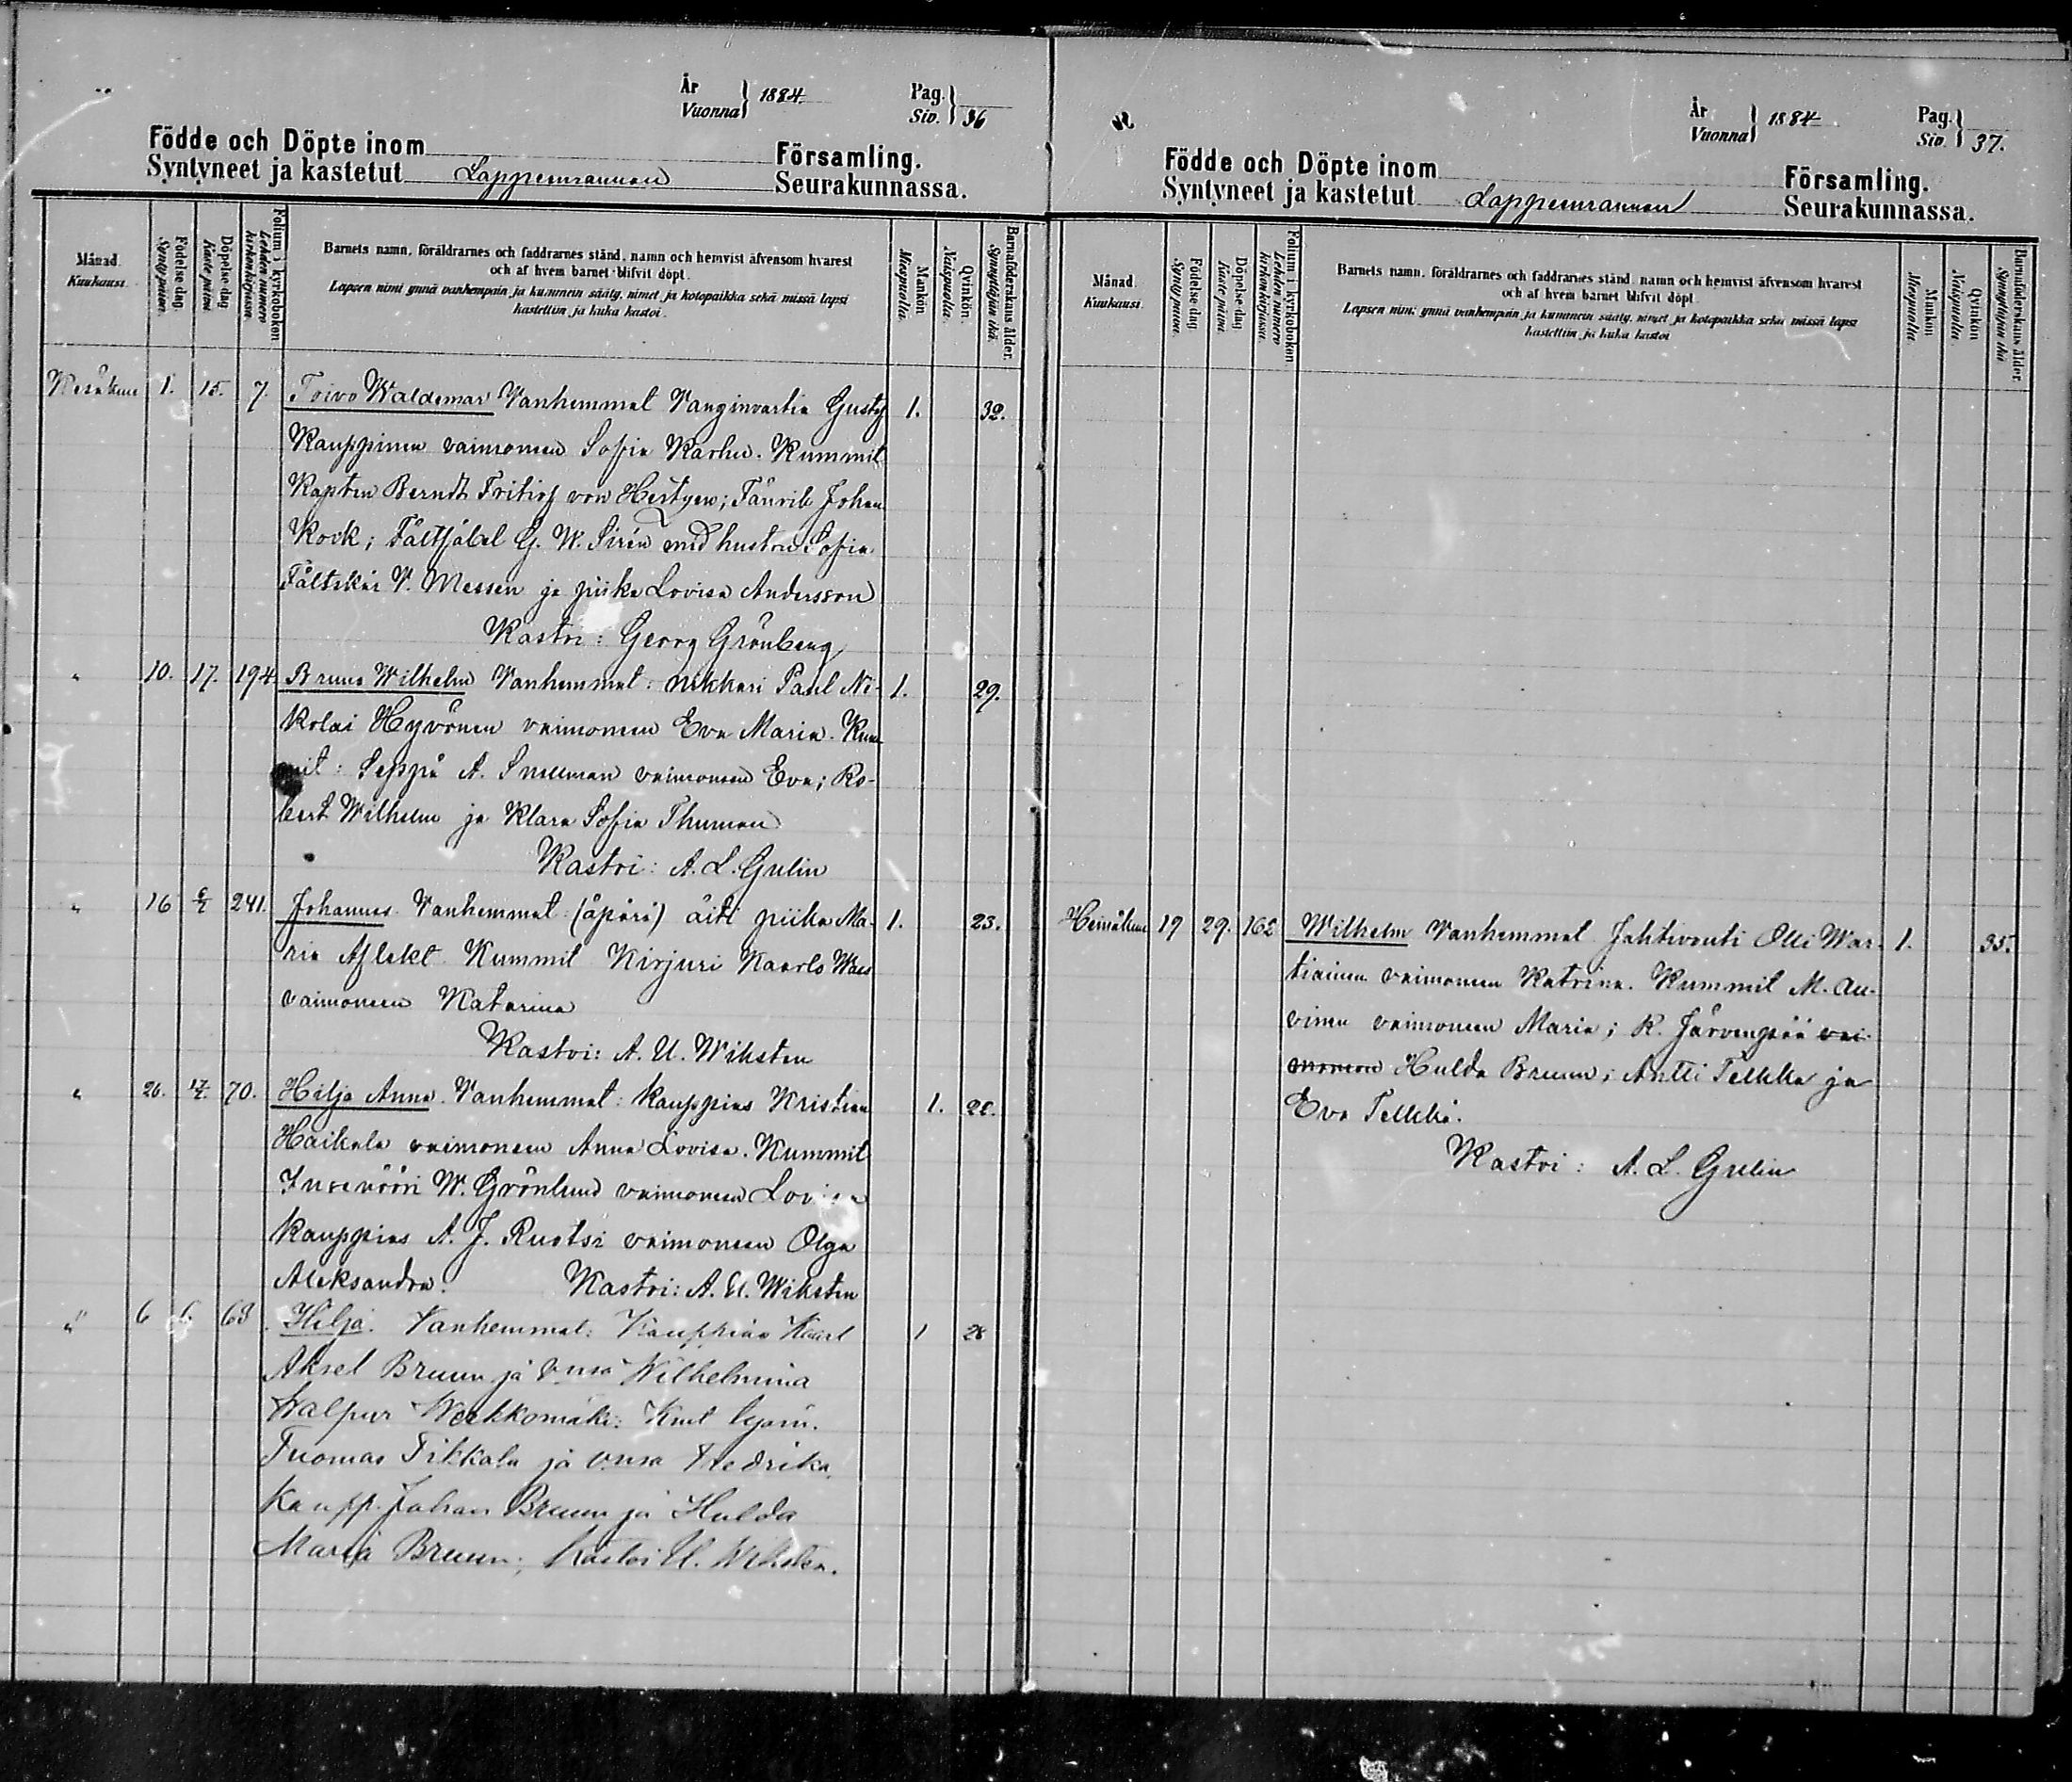 År
Vuonna } 1884.
Pag.
Siv. } 36
Födde och Döpte inom Församling.
Syntyneet ja kastetut Lappeenrannan Seurakunnassa.
Månad.
Kuukausi.
Födelse dag.
Synty päivä.
Döpelse dag.
Kaste päivä.
Folium i kyrkoboken
Lehden numero
kirkonkirjassa.
Barnets namn, föräldrarnes och faddrarnes stånd, namn och hemvist äfvensom hvarest
och af hvem barnet blifvit döpt.
Lapsen nimi ynnä vanhempain ja kummein sääty, nimet ja kotopaikka sekä missä lapsi
kastettiin ja kuka kastoi.
Mankön
Miespuolia.
Qvinkön.
Naispuolia.
Barnaföderskans ålder.
Synnyttäjän ikä.
Kesäkuu 1. 15. 7. Toivo Waldemar Vanhemmat Vanginvartia Gustaf 1. 32.
Kauppinen vaimoneen Sofia Karhu. Kummit
Kapten Berndt Fritiof von Hertzen; Fänrik Johan
Kock; Fältfäbel G. W. Sirén med hustru Sofia
Fältskär V. Messen ja piika Lovisa Andersson
Kastoi: Georg Grönberg
" 10. 17. 194 Bruno Wilhelm Vanhemmat: nikkari Paul Ni- 1. 29.
kolai Hyvönen vaimoneen Eva Maria. Kum
mit: Seppä A. Snellman vaimoneen Eva; Ro-
bert Wilhelm ja Klara Sofia Thuman
Kastoi: A. L. Gulin
" 16 6/7 241. Johannes. Vanhemmat: (äpärä) äiti piika Ma- 1. 23.
ria Aflekt Kummit Kirjuri Kaarlo
vaimoneen Katarina
Kastoi: A. U. Wiksten
" 26. 17/7. 70. Hilja Anna. Vanhemmat: Kauppias Kristian 1. 28.
Haikala vaimoneen Anna Lovisa. Kummit
Insenööri W. Grönlund vaimoneen Lovisa
Kauppias A. J. Ruotsi vaimoneen Olga
Aleksandra. Kastoi: A. U. Wiksten
" 6 68. Hilja. Vanhemmat: Kauppias Kaarl 1 28
Aksel Bruun ja vmsa Wilhelmina
Walpur Werkkomäki: Kmt
Tuomas Tikkala ja vmsa Fredrika,
Kaupp. Johan Bruun ja Hulda
Maria Bruun; Kastoi U. Wiksten.
År
Vuonna } 1884
Pag.
Siv. } 37.
Födde och Döpte inom Församling.
Syntyneet ja kastetut Lappeenrannan Seurakunnassa.
Månad.
Kuukausi.
Födelse dag.
Synty päivä.
Döpelse dag.
Kaste päivä.
Folium i kyrkoboken.
Lehden numero
kirkonkirjassa.
Barnets namn, föräldrarnes och faddrarnes stånd, namn och hemvist äfvensom hvarest
och af hvem barnet blifvit döpt.
Lapsen nimi ynnä vanhempain ja kummein sääty, nimet ja kotopaikka sekä missä lapsi
kastettiin ja kuka kastoi
Mankön
Miespuolia.
Qvinkön
Naispuolia
Barnaföderskans ålder.
Synnyttäjän ikä
Heinäkuu 19 29. 162 Wilhelm Vanhemmat Jahtivouti Olli War- 1. 35.
tiainen vaimoneen Katrina. Kummit M. Au-
vinen vaimoneen Maria; K. Järvenpää vai-
moneen Hulda Bruun; Antti Telkkä ja
Eva Telkkä.
Kastoi: A. L. Gulin